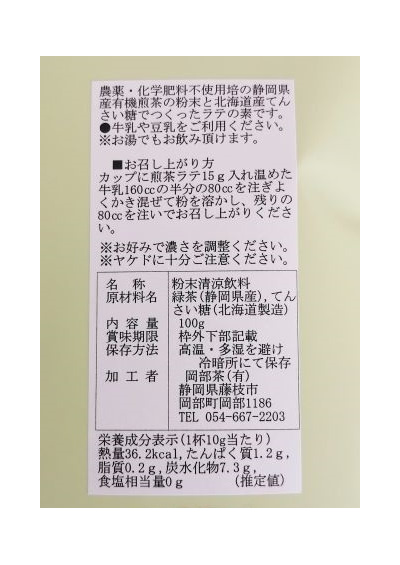 農薬・化学肥料不使用培の静岡県
産有機煎茶の粉末と北海道産てん
さい糖でつくったラテの素です。
●牛乳や豆乳をご利用ください。
※お湯でもお飲み頂けます。
■お召し上がり方
カップに煎茶ラテ15g入れ温めた
牛乳160ccの半分の80ccを注ぎよ
くかき混ぜて粉を溶かし、残りの
80ccを注いでお召し上がりくださ
い。
※お好みで濃さを調整ください。
※ヤケドに十分ご注意ください。
名 称 粉末清涼飲料
原材料名 緑茶(静岡県産),てん
さい糖(北海道製造)
内 容 量 100g
賞味期限 枠外下部記載
保存方法 高温・多湿を避け
冷暗所にて保存
加 工 者 岡部茶(有)
静岡県藤枝市
岡部町岡部1186
TEL 054-667-2203
栄養成分表示(1杯10g当たり)
熱量36.2kcal,たんぱく質1.2g,
脂質0.2g,炭水化物7.3g,
食塩相当量0g (推定値)